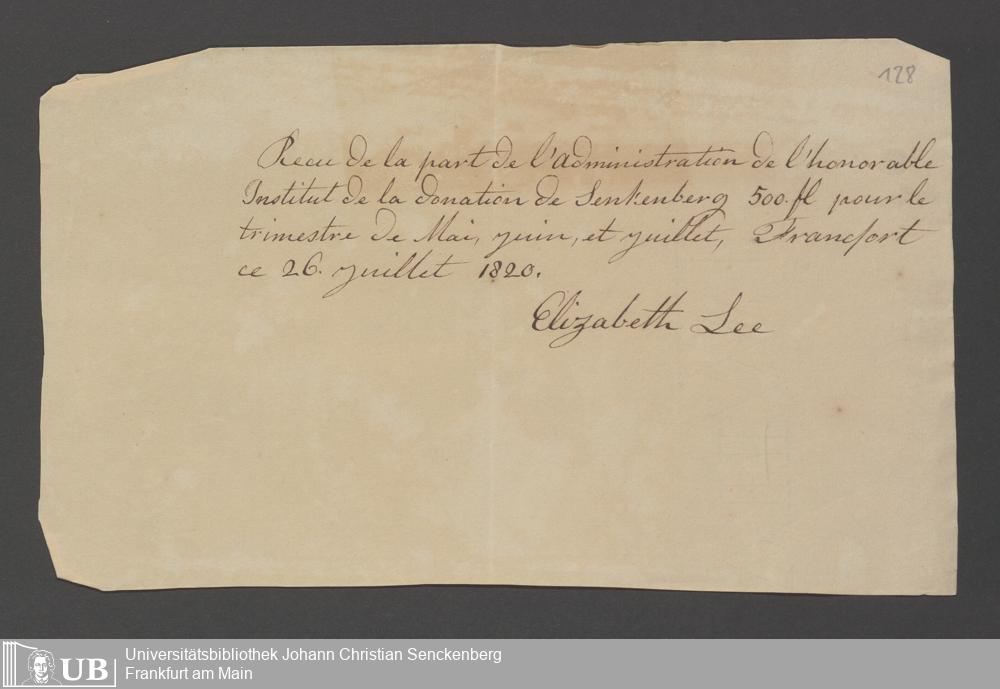 128
Recu de la part de l'administration de l'honorable
Institut de la donation de Senkenberg 500 fl pour le
trimestre de Mai, juin, et juillet, Francfort
ce 26. juillet 1820.
Elizabeth Lee
UB
Universitätsbibliothek Johann Christian Senckenberg
Frankfurt am Main